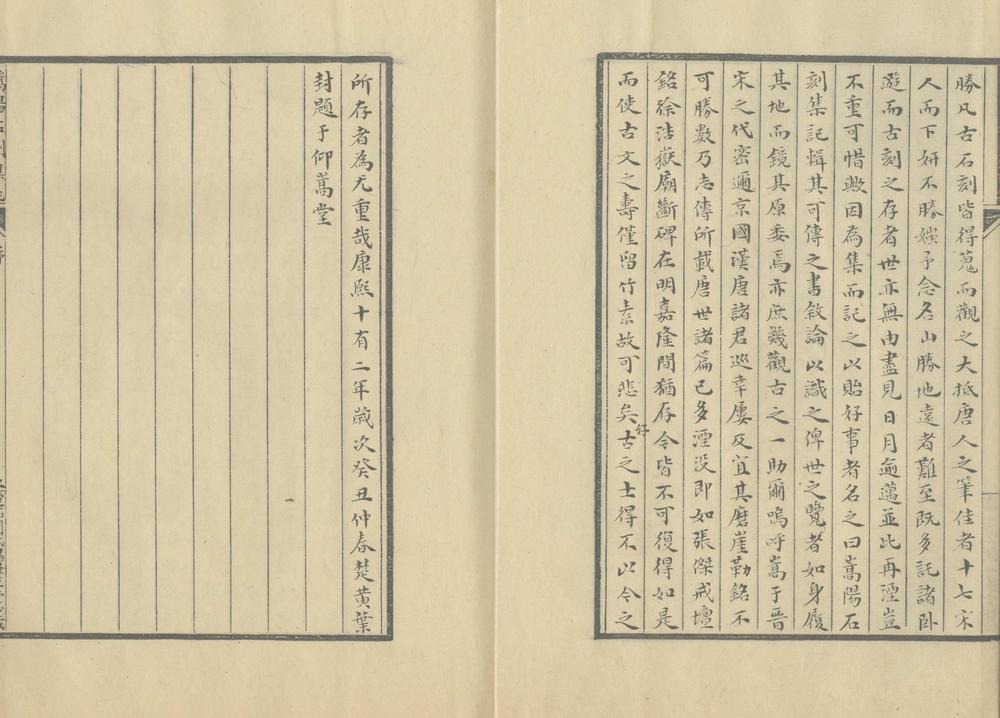 勝凡古石刻皆得蒐而觀之大抵唐人之筆佳者十七宋
人而下妍不勝媸予念名山勝地遠者難至既多託諸卧
遊而古刻之存者世亦無由盡見日月逾邁並此再湮豈
不重可惜歟因為集而記之以貽好事者名之曰嵩陽石
刻集記輯其可傳之書敘論以識之俾世之覽者如身履
其地而鏡其原委焉亦庶幾觀古之一助爾嗚呼嵩于晉
宋之代密邇京國漢唐諸君巡幸屢及宜其磨崖勒銘不
可勝數乃志傳所載唐世諸篇已多湮没即如張傑戒壇
銘徐浩嶽廟斷碑在明嘉隆間猶存今皆不可復得如是
而使古文之壽僅留竹素故可悲矣好古之士得不以今之
所存者為尤重哉康熙十有二年歲次癸丑仲春楚黃葉
封題于仰嵩堂
嵩陽石刻集記
序